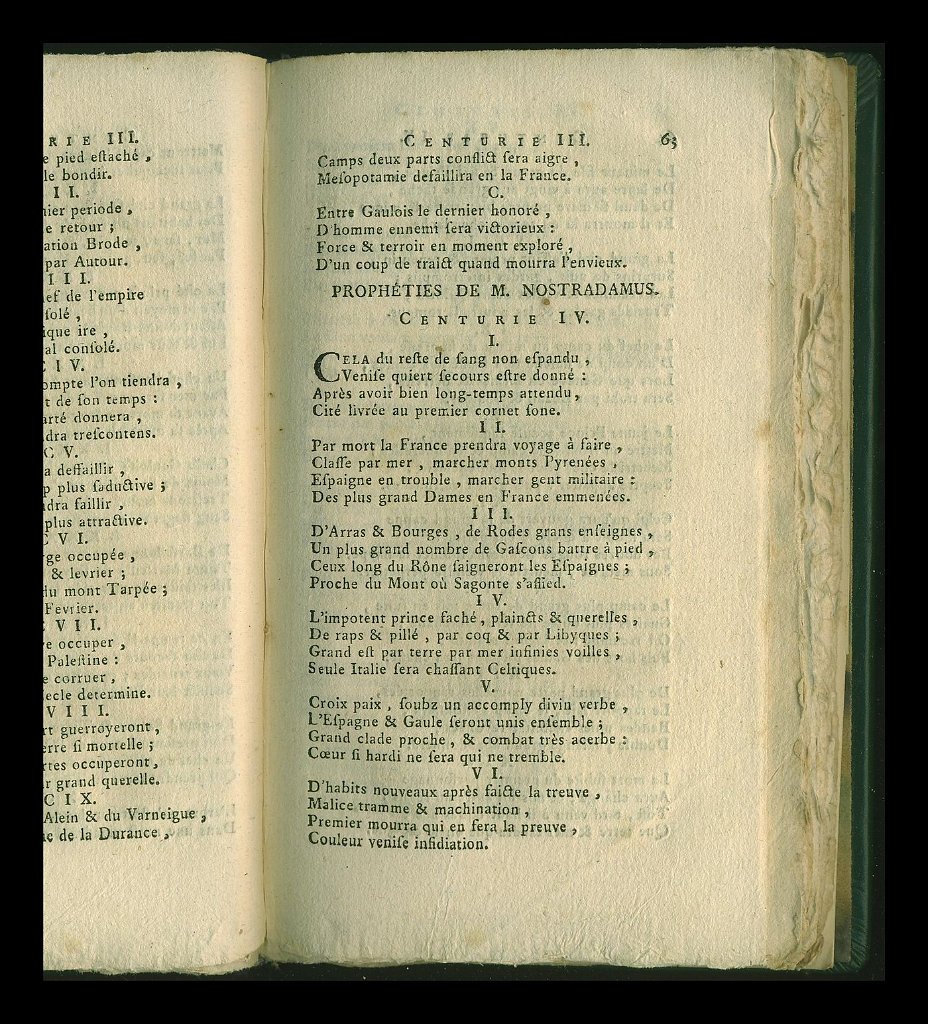 RIE III.
e pied eſtaché ,
le bondir.
I I.
nier periode ,
e retour ;
ation Brode ,
par Autour.
I I I.
ef de l'empire
ſolé ,
ique ire ,
al conſolé.
C I V.
ompte l'on tiendra ,
t de ſon temps :
arté donnera ,
dra treſcontens.
C V.
a deffaillir ,
p plus ſaductive ;
dra faillir ,
plus attractive.
C V I.
rge occupée ,
& levrier ;
du mont Tarpée ;
Fevrier.
V I I.
e occuper ,
Paleſtine :
e corruer ,
ecle determine.
V I I I.
rt guerroyeront ,
erre ſi mortelle ;
rtes occuperont ,
r grand querelle.
C I X.
Alein & du Varneigue ,
de la Durance ,
CENTURIE III. 63
Camps deux parts conflict ſera aigre ,
Meſopotamie defaillira en la France.
C.
Entre Gaulois le dernier honoré ,
D'homme ennemi ſera victorieux :
Force & terroir en moment exploré ,
D'un coup de traict quand mourra l'envieux.
PROPHÉTIES DE M. NOSTRADAMUS.
CENTURIE IV.
I.
CELA du reſte de ſang non eſpandu ,
Veniſe quiert ſecours eſtre donné :
Après avoir bien long-temps attendu ,
Cité livrée au premier cornet ſone.
I I.
Par mort la France prendra voyage à faire ,
Claſſe par mer , marcher monts Pyrenées ,
Eſpaigne en trouble , marcher gent militaire :
Des plus grand Dames en France emmenées.
I I I.
D'Arras & Bourges , de Rodes grans enſeignes ,
Un plus grand nombre de Gaſcons battre à pied ,
Ceux long du Rône ſaigneront les Eſpaignes ;
Proche du Mont où Sagonte s'aſſied.
I V.
L'impotent prince faché , plaincts & querelles ,
De raps & pillé , par coq & par Libyques ;
Grand eſt par terre par mer infinies voilles ,
Seule Italie ſera chaſſant Celtiques.
V.
Croix paix , ſoubz un accomply divin verbe ,
L'Eſpagne & Gaule ſeront unis enſemble ;
Grand clade proche , & combat très acerbe :
Cœur ſi hardi ne ſera qui ne tremble.
V I.
D'habits nouveaux après faicte la treuve ,
Malice tramme & machination ,
Premier mourra qui en fera la preuve ,
Couleur veniſe inſidiation.